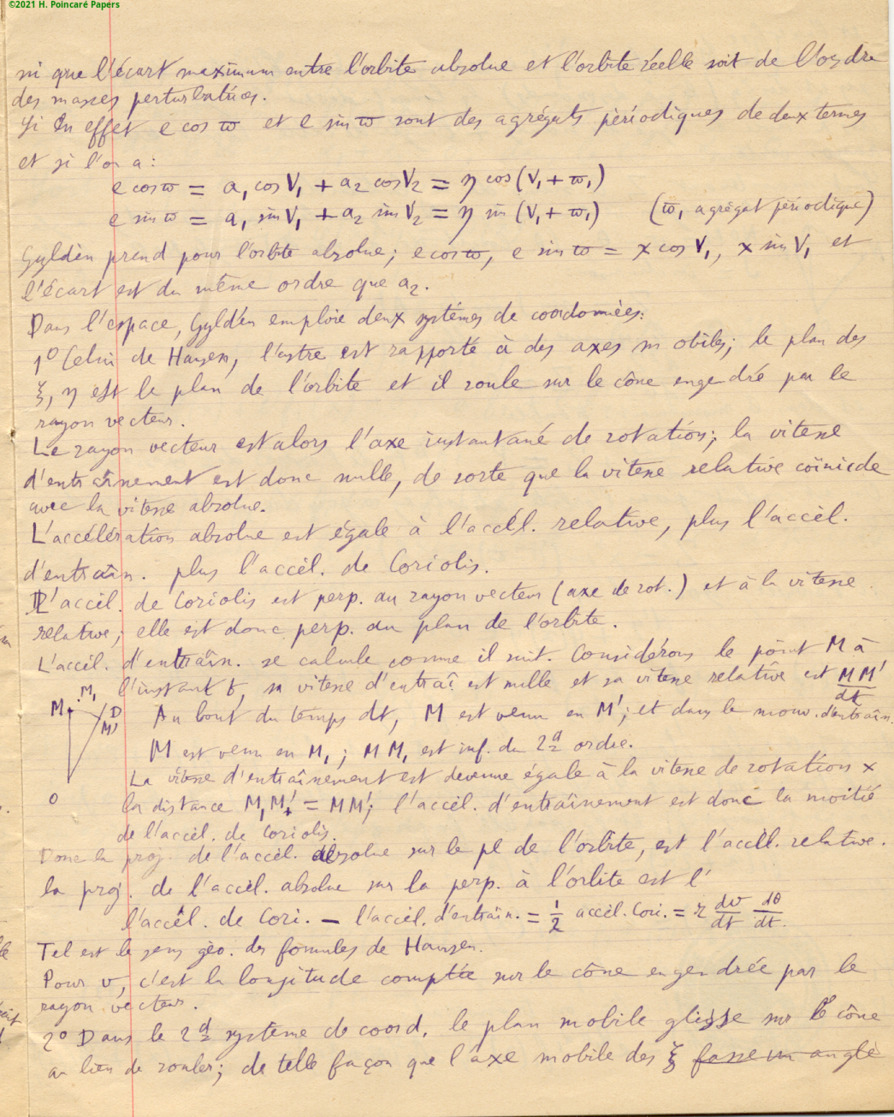 ©2021 H. Poincaré Papers
ni que l'écart maximum entre l'orbite absolue et l'orbite réelle soit de l'ordre
des masses perturbatrices.
Si en effet e cos ϖ et e sin ϖ sont des agrégats périodiques de deux termes
et si l'on a :
e cos ϖ = a₁ cos V₁ + a₂ cos V₂ = η cos (V₁ + ϖ₁)
e sin ϖ = a₁ sin V₁ + a₂ sin V₂ = η sin (V₁ + ϖ₁) (ϖ₁ agrégat périodique)
Gyldèn prend pour l'orbite absolue ; e cos ϖ, e sin ϖ = x cos V₁, x sin V₁ et
l'écart est du même ordre que a₂.
Dans l'espace, Gyldén emploie deux systèmes de coordonnées :
1º Celui de Hansen, l'astre est rapporté à des axes mobiles ; le plan des
ξ, η est le plan de l'orbite et il roule sur le cône engendré par le
rayon vecteur.
Le rayon vecteur est alors l'axe instantané de rotation ; la vitesse
d'entraînement est donc nulle, de sorte que la vitesse relative coïnicde
avec la vitesse absolue.
L'accélération absolue est égale à l'accél. relative, plus l'accèl.
d'entraîn. plus l'accèl. de Coriolis.
L'accèl. de Coriolis est perp. au rayon vecteur (axe de rot.) et à la vitesse
relative ; elle est donc perp. au plan de l'orbite.
L'accél. d'entraîn. se calcule comme il suit. Considérons le point M à
l'instant t, sa vitesse d'entraî. est nulle et sa vitesse relative est MM'/dt
M M₁ D M'
Au bout du temps dt, M est venu en M' ; et dans le mouv. d'entraîn.
M est venu en M₁ ; MM₁ est inf. du 2d ordre.
La vitesse d'entraînement est devenue égale à la vitesse de rotation ×
O
la distance M₁M' = MM' ; l'accèl. d'entraînement est donc la moitié
de l'accèl. de Coriolis.
Donc la proj. de l'accèl. absolue sur le pl de l'orbite, est l'accèl. relative.
la proj. de l'accèl. absolue sur la perp. à l'orbite est l'
l'accèl. de Cori. − l'accèl. d'entraîn. = 1/2 accèl. Cori. = r dv/dt dθ/dt.
Tel est le sens géo. des formules de Hansen.
Pour v, c'est la longitude comptée sur le cône engendrée par le
rayon vecteur.
2º Dans le 2d système de coord. le plan mobile glisse sur le cône
au lieu de rouler ; de telle façon que l'axe mobile des ξ fasse un angle